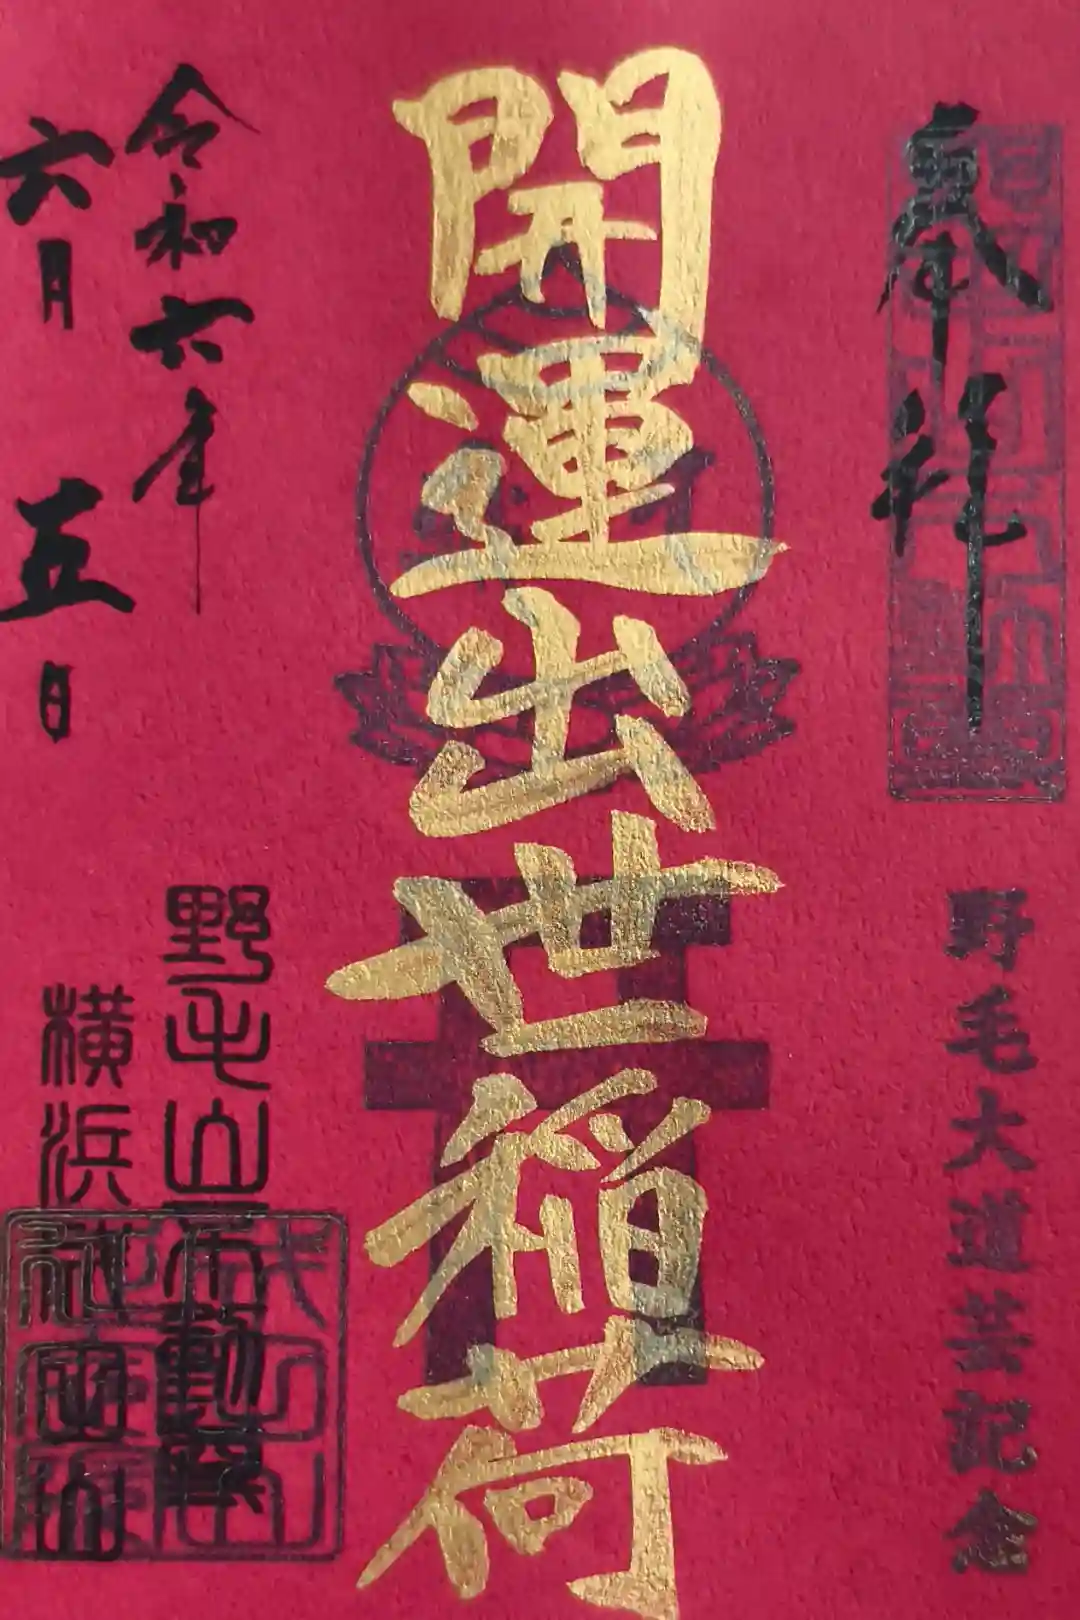 奉拝
野毛大道芸記念
開運出世稲荷
令和六年
六月五日
野毛山不動尊
横浜成田山